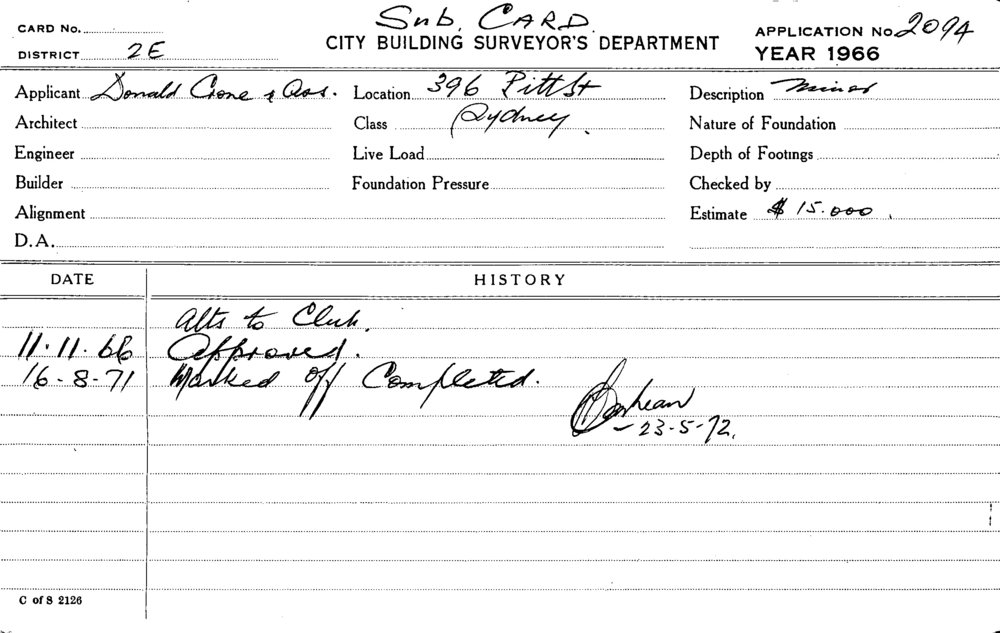 Sub. CARD.
CARD No.
CITY BUILDING SURVEYOR'S DEPARTMENT
APPLICATION No. 2094
DISTRICT 2E
YEAR 1966
Applicant Donald Crone & Ass. Location 396 Pitt St Description Minor
Architect Class Sydney. Nature of Foundation
Engineer Live Load Depth of Footings
Builder Foundation Pressure Checked by
Alignment Estimate $15.000.
D.A.
DATE HISTORY
Alts to Club.
11.11.66 Approved.
16-8-71 Marked off Completed.
-23-5-72.
C of S 2126